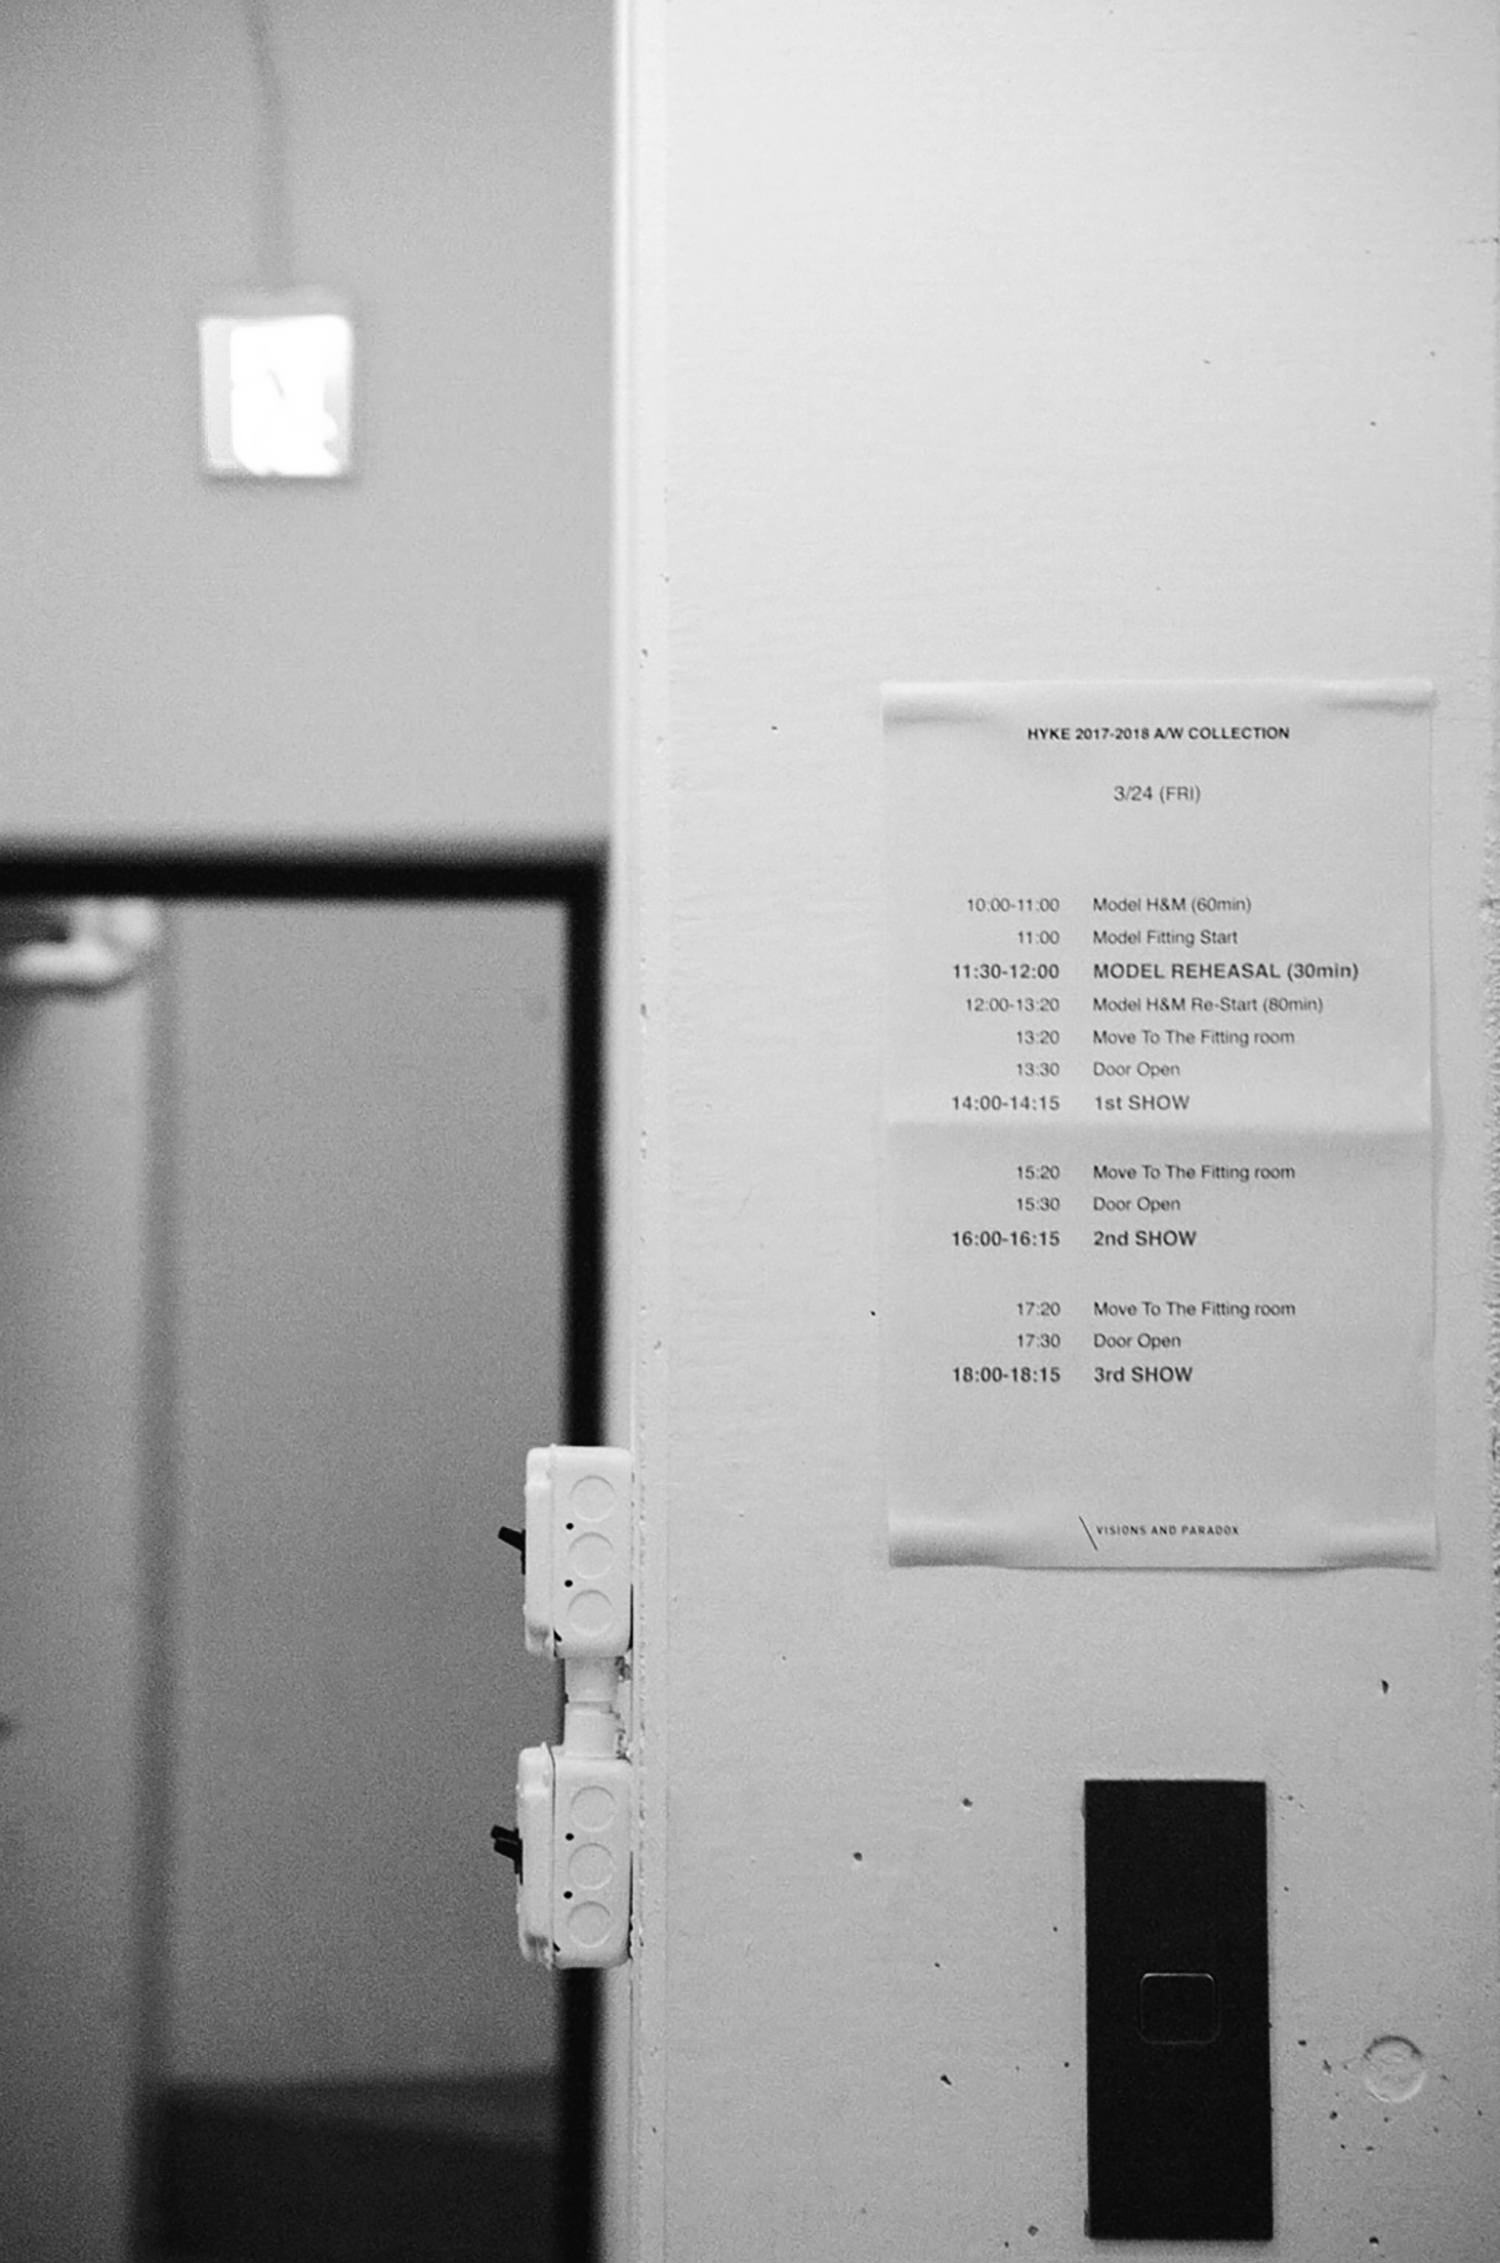 HYKE 2017-2018 A/W COLLECTION
3/24 (FRI)
10:00-11:00 Model H&M (60min)
11:00 Model Fitting Start
11:30-12:00 MODEL REHEASAL (30min)
12:00-13:20 Model H&M Re-Start (80min)
13:20 Move To The Fitting room
13:30 Door Open
14:00-14:15 1st SHOW
15:20 Move To The Fitting room
15:30 Door Open
16:00-16:15 2nd SHOW
17:20 Move To The Fitting room
17:30 Door Open
18:00-18:15 3rd SHOW
VISIONS AND PARADOX